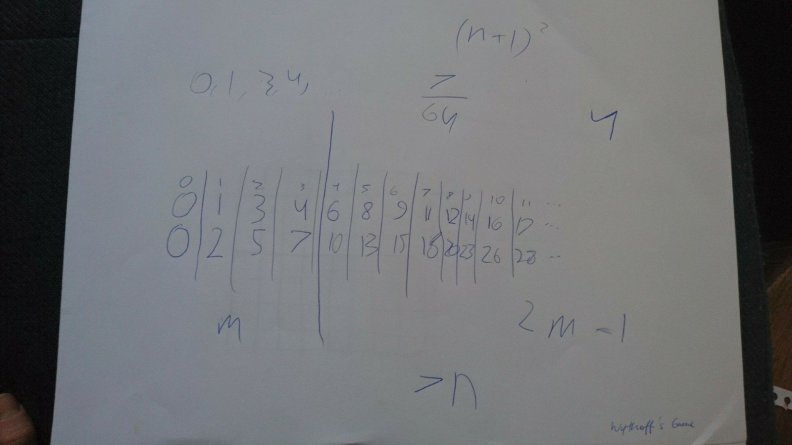 (n+1)²
0, 1, 3, 4,
7
64
4
0 1 2 3 4 5 6 7 8 9 10 11 ...
0 1 3 4 6 8 9 11 12 14 16 17 ...
0 2 5 7 10 13 15 18 20 23 26 28 ...
m
2m-1
>n
Wythoff's Game